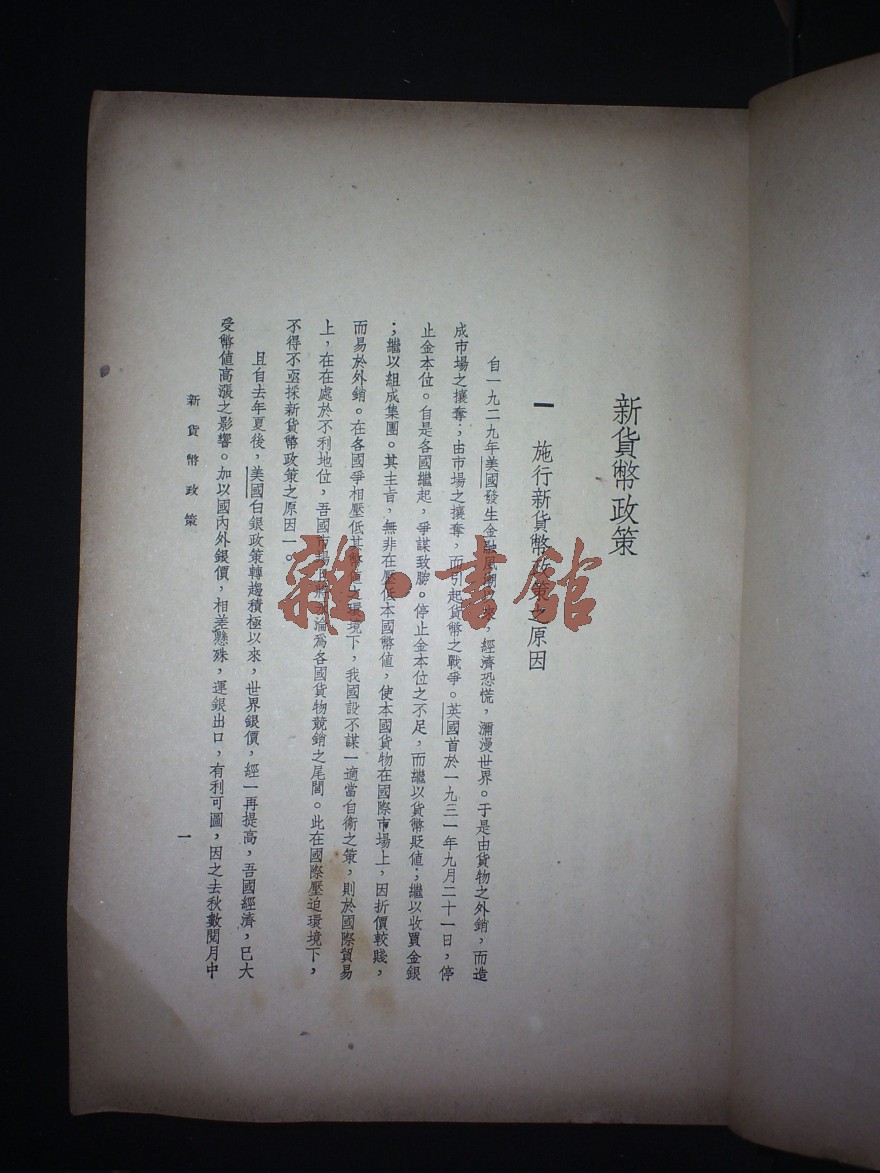 新貨幣政策
一 施行新貨幣政策之原因
自一九二九年美國發生金融風潮以來，經濟恐慌，瀰漫世界。于是由貨物之外銷，而造
成市場之攘奪；由市場之攘奪，而引起貨幣之戰爭。英國首於一九三一年九月二十一日，停
止金本位。自是各國繼起，爭謀致勝。停止金本位之不足，而繼以貨幣貶值；繼以收買金銀
；繼以組成集團。其主旨，無非在壓低本國幣值，使本國貨物在國際市場上，因折價較賤，
而易於外銷。在各國爭相壓低其幣值之環境下，我國設不謀一適當自衛之策，則於國際貿易
上，在在處於不利地位，吾國市場且將淪爲各國貨物競銷之尾閭。此在國際壓迫環境下，
不得不亟採新貨幣政策之原因一。
且自去年夏後，美國白銀政策轉趨積極以來，世界銀價，經一再提高，吾國經濟，已大
受幣值高漲之影響。加以國內外銀價，相差懸殊，運銀出口，有利可圖，因之去秋數閱月中
新貨幣政策
一
雜·書館